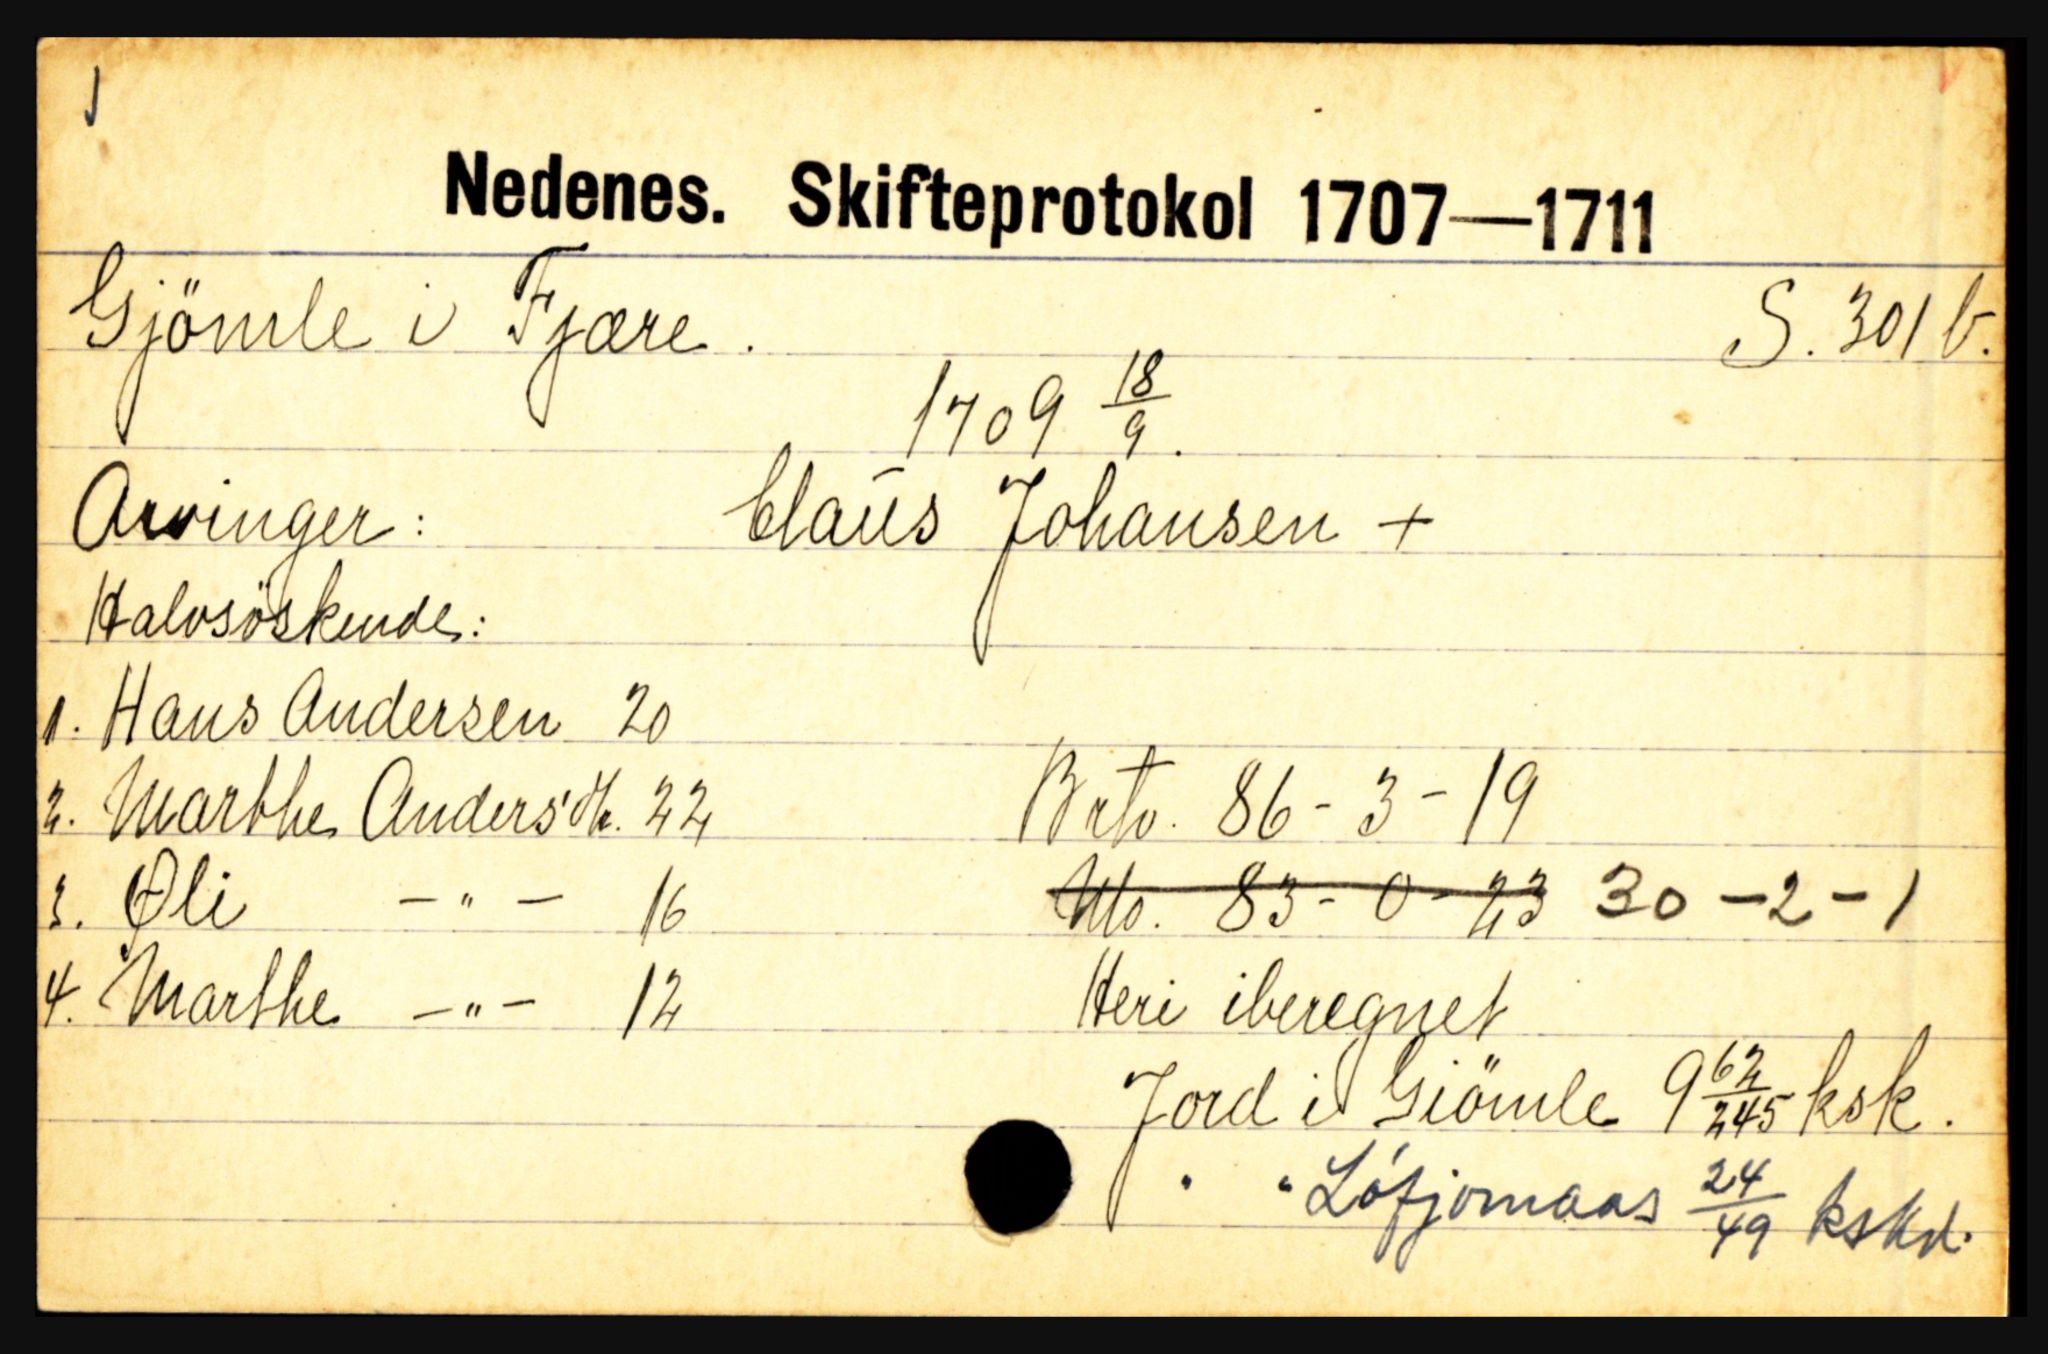 Nedenes. Skifteprotokol 1707—1711
Gjömle i Fjære. S. 301 b.
1709 18/9.
Arvinger: Claus Johansen +
Halvsöskende:
1. Hans Andersen 20
2. Marthe Anders'dtr. 22 Brto. 86-3-19
3. Øli —"— 16 Nto. 83-0-23 30-2-1
4. Marthe —"— 12 Heri iberegnet
Jord i Giömle 9 62/245 ksk.
" " Löfjomaas 24/49 kskd.